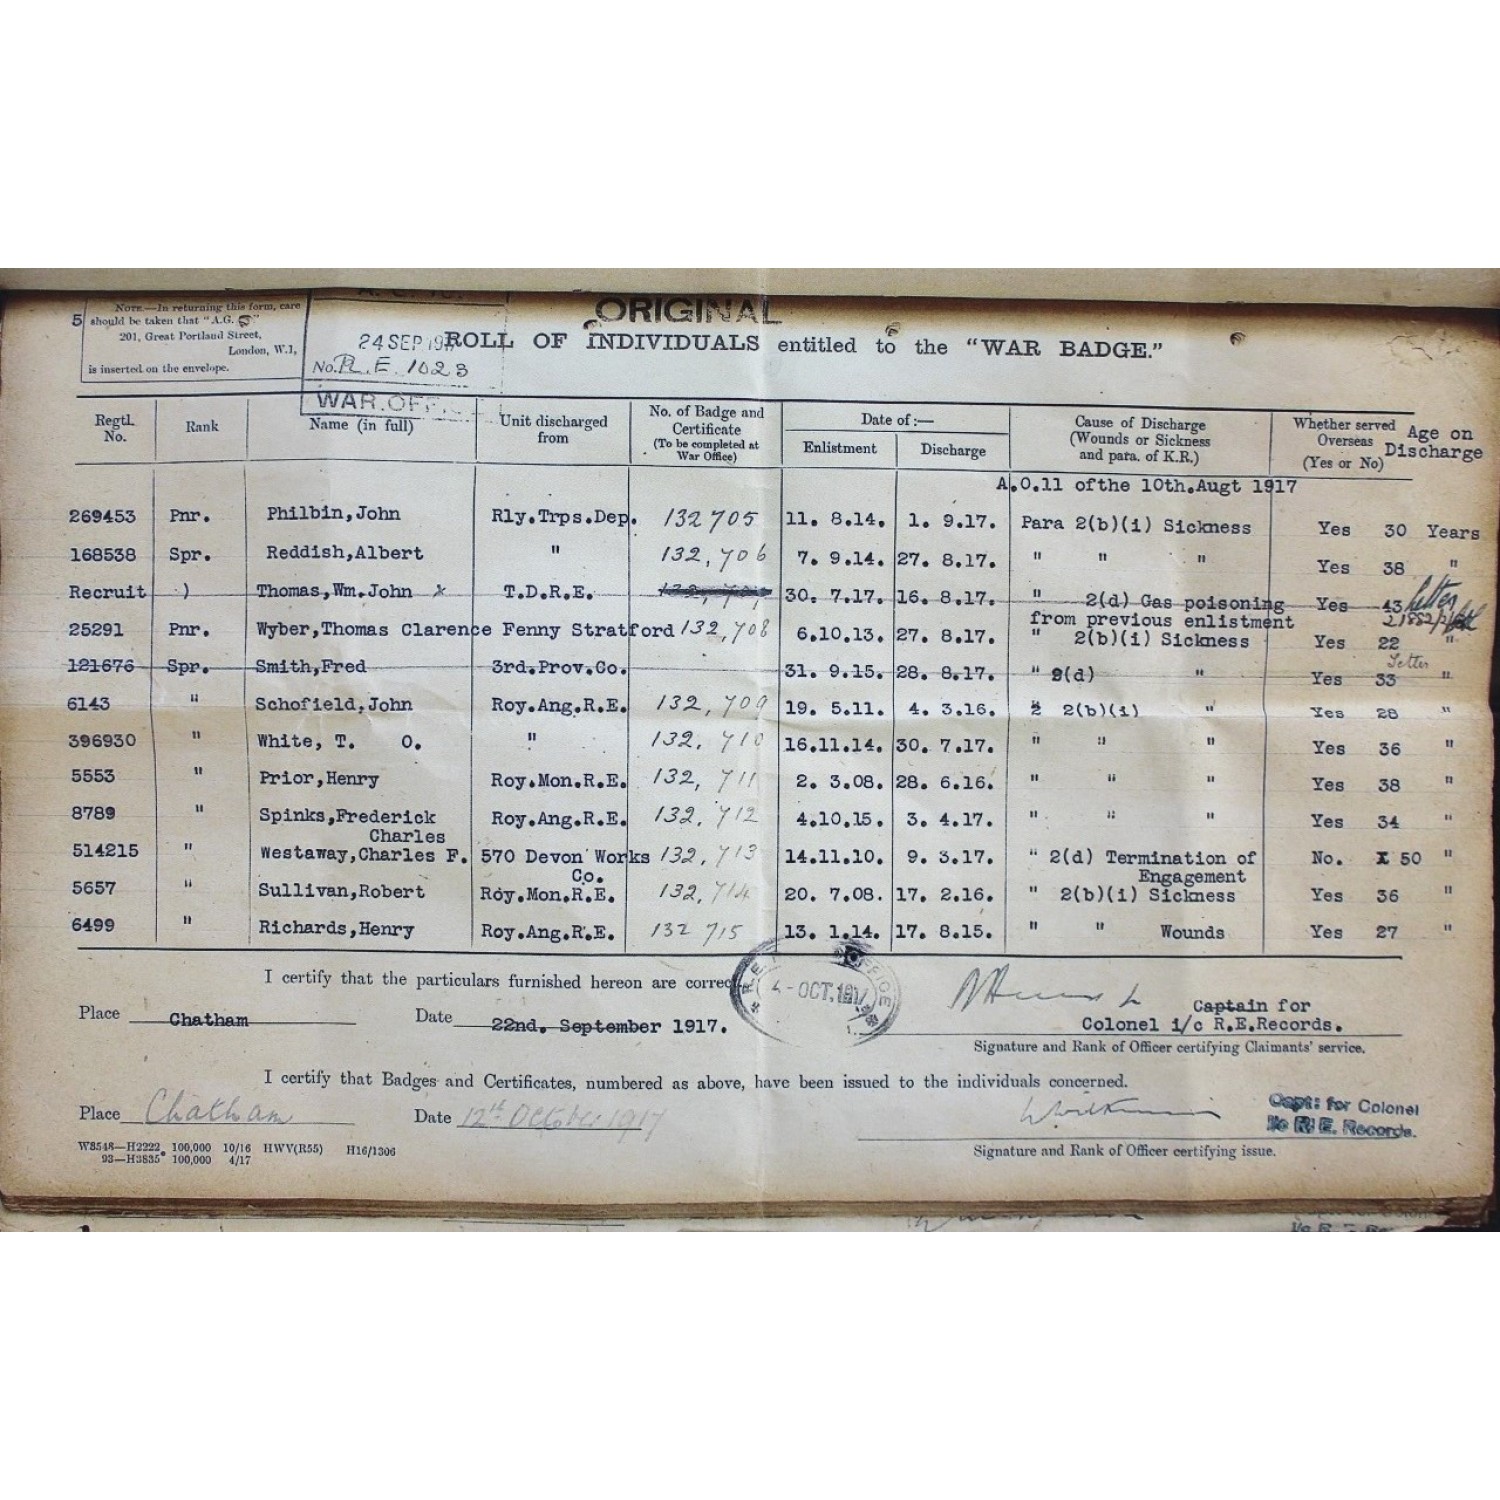 ORIGINAL
NOTE.—In returning this form, care
5 should be taken that "A.G. 5"
201, Great Portland Street,
London, W.1,
is inserted on the envelope.
24 SEP 191
No. R.E. 1023
WAR OFF
ROLL OF INDIVIDUALS entitled to the "WAR BADGE."
Regtl. No. Rank Name (in full) Unit discharged from No. of Badge and Certificate (To be completed at War Office) Date of :— Enlistment Discharge Cause of Discharge (Wounds or Sickness and para. of K.R.) Whether served Overseas (Yes or No) Age on Discharge
A.O.11 ofthe 10th.Augt 1917
269453 Pnr. Philbin,John Rly.Trps.Dep. 132705 11. 8.14. 1. 9.17. Para 2(b)(i) Sickness Yes 30 Years
168538 Spr. Reddish,Albert " 132,706 7. 9.14. 27. 8.17. " " " Yes 38 "
Recruit ) Thomas,Wm.John x T.D.R.E. 30. 7.17. 16. 8.17. " 2(d) Gas poisoning Yes 43 Letter
from previous enlistment
25291 Pnr. Wyber,Thomas Clarence Fenny Stratford 132,708 6.10.13. 27. 8.17. " 2(b)(i) Sickness Yes 22 "
121676 Spr. Smith,Fred 3rd.Prov.Co. 31. 9.15. 28. 8.17. " 2(d) " Yes 33 " Letter
6143 " Schofield,John Roy.Ang.R.E. 132,709 19. 5.11. 4. 3.16. 2 2(b)(i) " Yes 28 "
396930 " White, T. O. " 132,710 16.11.14. 30. 7.17. " " " Yes 36 "
5553 " Prior,Henry Roy.Mon.R.E. 132,711 2. 3.08. 28. 6.16. " " " Yes 38 "
8789 " Spinks,Frederick Roy.Ang.R.E. 132,712 4.10.15. 3. 4.17. " " " Yes 34 "
Charles
514215 " Westaway,Charles F. 570 Devon Works 132,713 14.11.10. 9. 3.17. " 2(d) Termination of No. 50 "
Co. Engagement
5657 " Sullivan,Robert Roy.Mon.R.E. 132,714 20. 7.08. 17. 2.16. " 2(b)(i) Sickness Yes 36 "
6499 " Richards,Henry Roy.Ang.R.E. 132 715 13. 1.14. 17. 8.15. " " Wounds Yes 27 "
I certify that the particulars furnished hereon are correct
R.E. OFFICE
4-OCT.1917
Place Chatham Date 22nd. September 1917.
Captain for
Colonel i/c R.E.Records.
Signature and Rank of Officer certifying Claimants' service.
I certify that Badges and Certificates, numbered as above, have been issued to the individuals concerned.
Place Chatham Date 12th October 1917
Capt: for Colonel
i/c R.E. Records.
Signature and Rank of Officer certifying issue.
W8548—H2222 100,000 10/16 HWV(R55) H16/1306
93—H3835 100,000 4/17